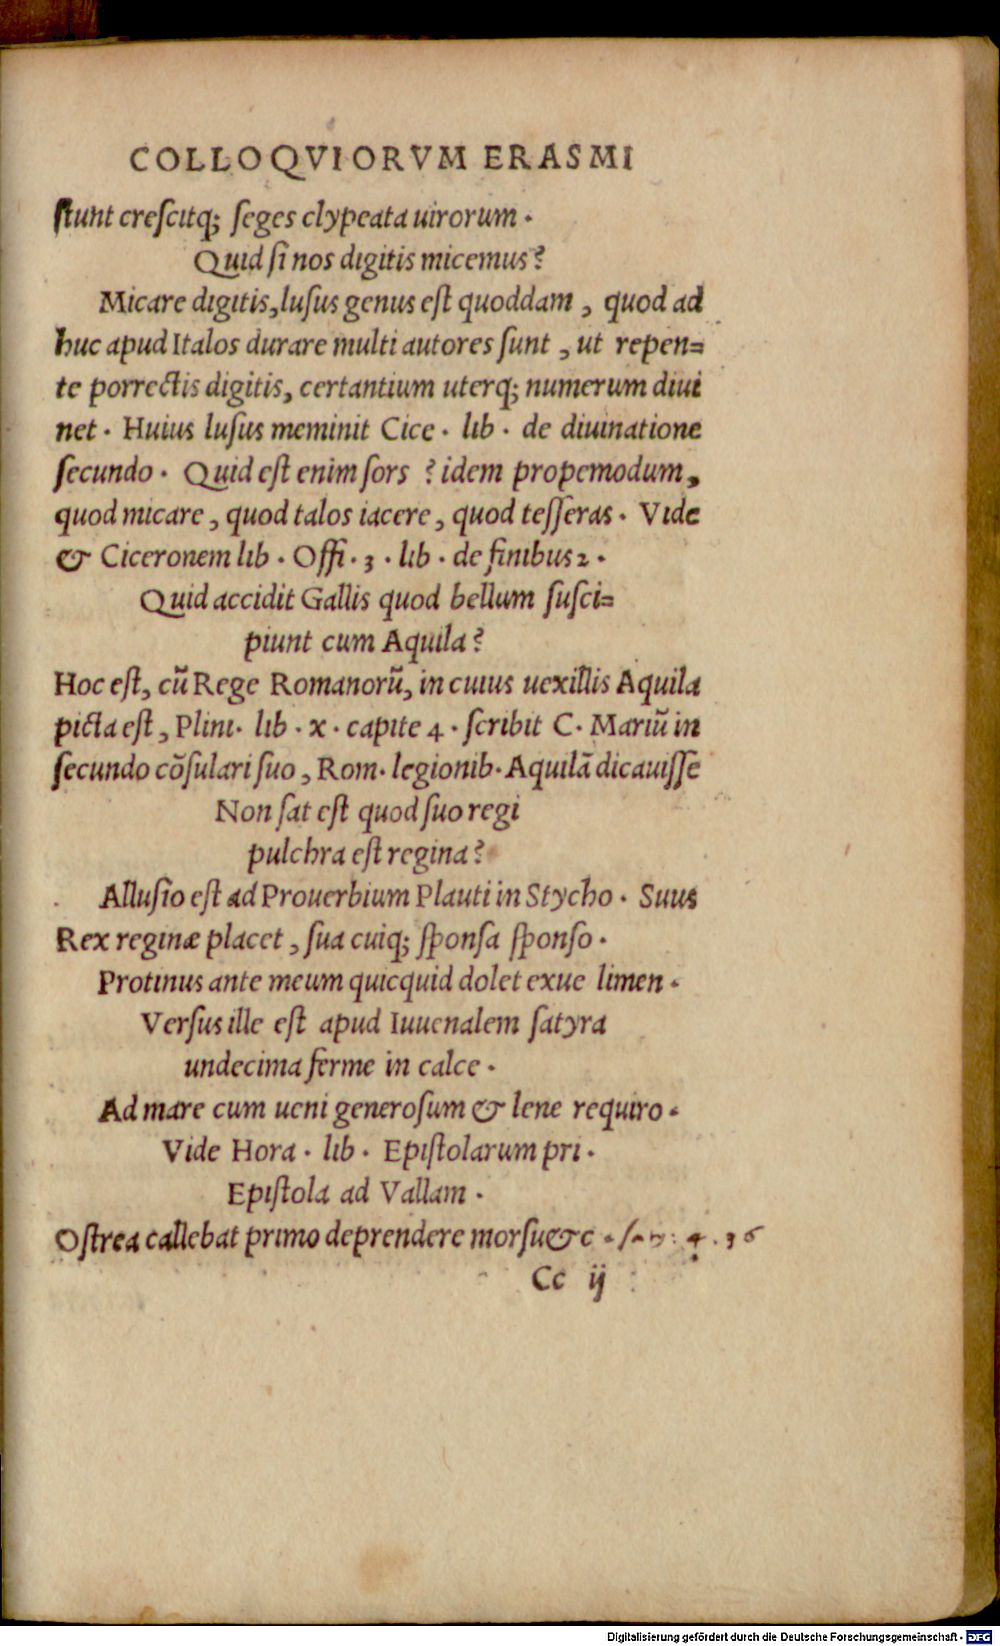 COLLOQVIORVM ERASMI
ſtunt creſcitq; ſeges clypeata uirorum .
Quid ſi nos digitis micemus?
Micare digitis, luſus genus eſt quoddam , quod ad
huc apud Italos durare multi autores ſunt , ut repen=
te porrectis digitis, certantium uterq; numerum diui
net . Huius luſus meminit Cice . lib . de diuinatione
ſecundo . Quid eſt enim ſors ? idem propemodum,
quod micare , quod talos iacere , quod teſſeras . Vide
& Ciceronem lib . Offi . 3 . lib . de finibus 2 .
Quid accidit Gallis quod bellum ſuſci=
piunt cum Aquila?
Hoc eſt, cũ Rege Romanorũ, in cuius uexillis Aquila
picta eſt , Plini. lib . x . capite 4 . ſcribit C. Mariũ in
ſecundo cõſulari ſuo , Rom. legionib. Aquilã dicauiſſe
Non ſat eſt quod ſuo regi
pulchra eſt regina?
Alluſio eſt ad Prouerbium Plauti in Stycho . Suus
Rex reginæ placet , ſua cuiq; ſponſa ſponſo .
Protinus ante meum quicquid dolet exue limen .
Verſus ille eſt apud Iuuenalem ſatyra
undecima ferme in calce .
Ad mare cum ueni generoſum & lene requiro .
Vide Hora . lib . Epiſtolarum pri .
Epiſtola ad Vallam .
Oſtrea callebat primo deprendere morſu &c .
Cc ij
Digitalisierung gefördert durch die Deutsche Forschungsgemeinschaft - DFG